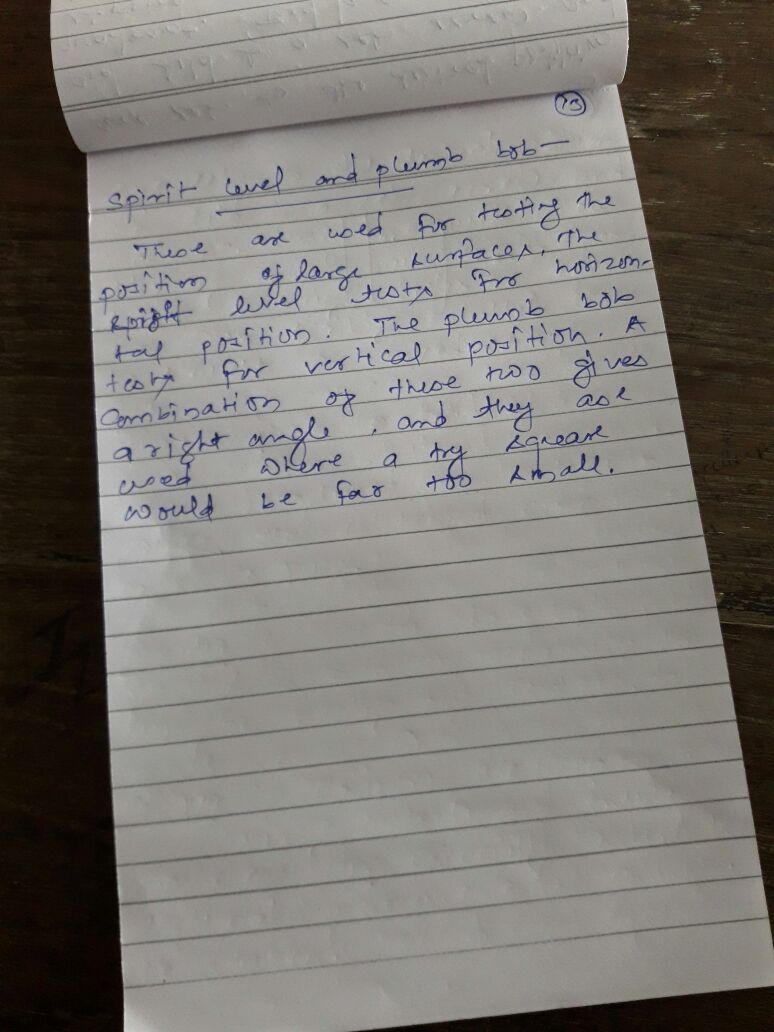 73
Spirit level and plumb bob—
These are used for testing the
position of large surfaces. The
spirit level tests for horizon-
tal position. The plumb bob
tests for vertical position. A
Combination of these two gives
a right angle, and they are
used where a try square
would be far too small.